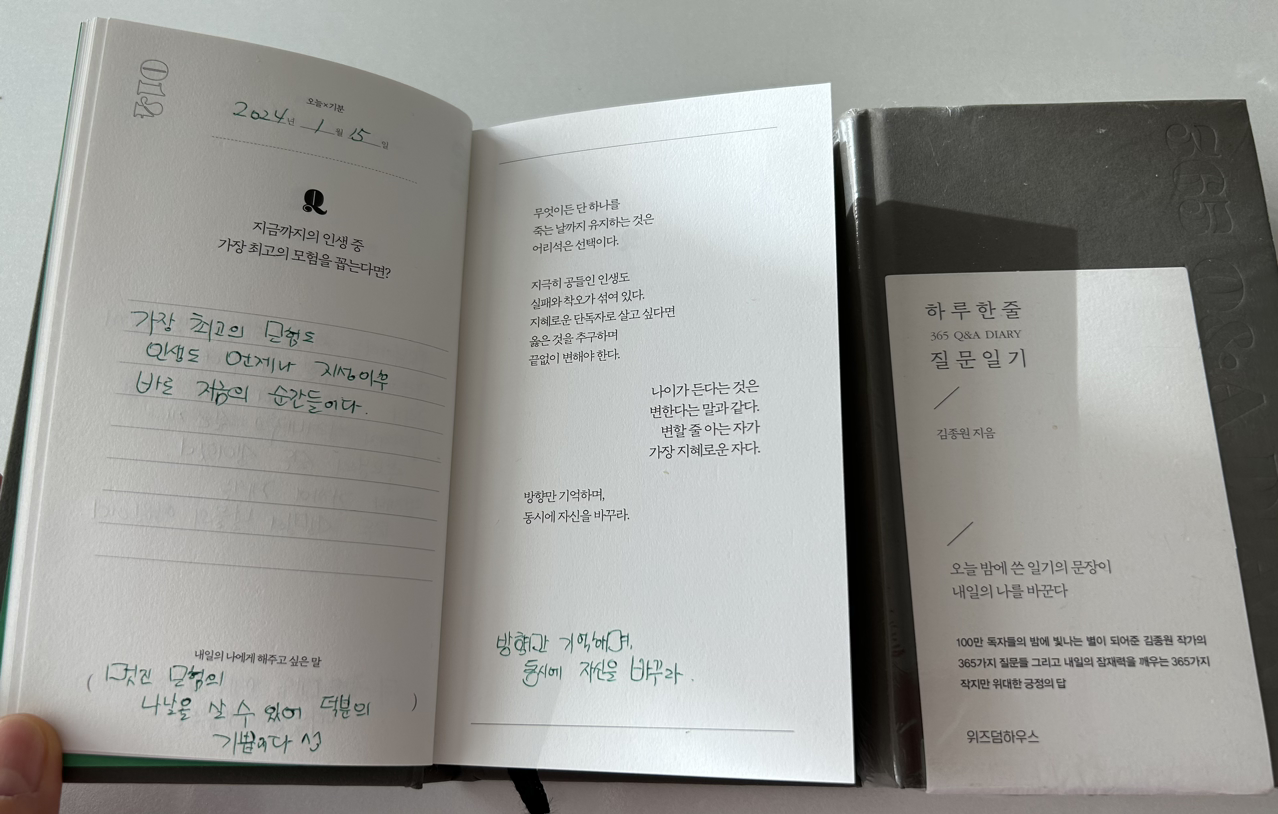 015
오늘×기분
2024년 1월 15일
Q
지금까지의 인생 중
가장 최고의 모험을 꼽는다면?
가장 최고의 모험도
인생도 언제나 지성이우
바로 지금의 순간들이다.
내일의 나에게 해주고 싶은 말
( 멋진 모험의
나날을 살 수 있어 덕분의 )
기쁨이다
무엇이든 단 하나를
죽는 날까지 유지하는 것은
어리석은 선택이다.
지극히 공들인 인생도
실패와 착오가 섞여 있다.
지혜로운 단독자로 살고 싶다면
옳은 것을 추구하며
끝없이 변해야 한다.
나이가 든다는 것은
변한다는 말과 같다.
변할 줄 아는 자가
가장 지혜로운 자다.
방향만 기억하며,
동시에 자신을 바꾸라.
방향만 기억하며,
동시에 자신을 바꾸라.
365 Q&A
하루 한 줄
365 Q&A DIARY
질문 일기
김종원 지음
오늘 밤에 쓴 일기의 문장이
내일의 나를 바꾼다
100만 독자들의 밤에 빛나는 별이 되어준 김종원 작가의
365가지 질문들 그리고 내일의 잠재력을 깨우는 365가지
작지만 위대한 긍정의 답
위즈덤하우스